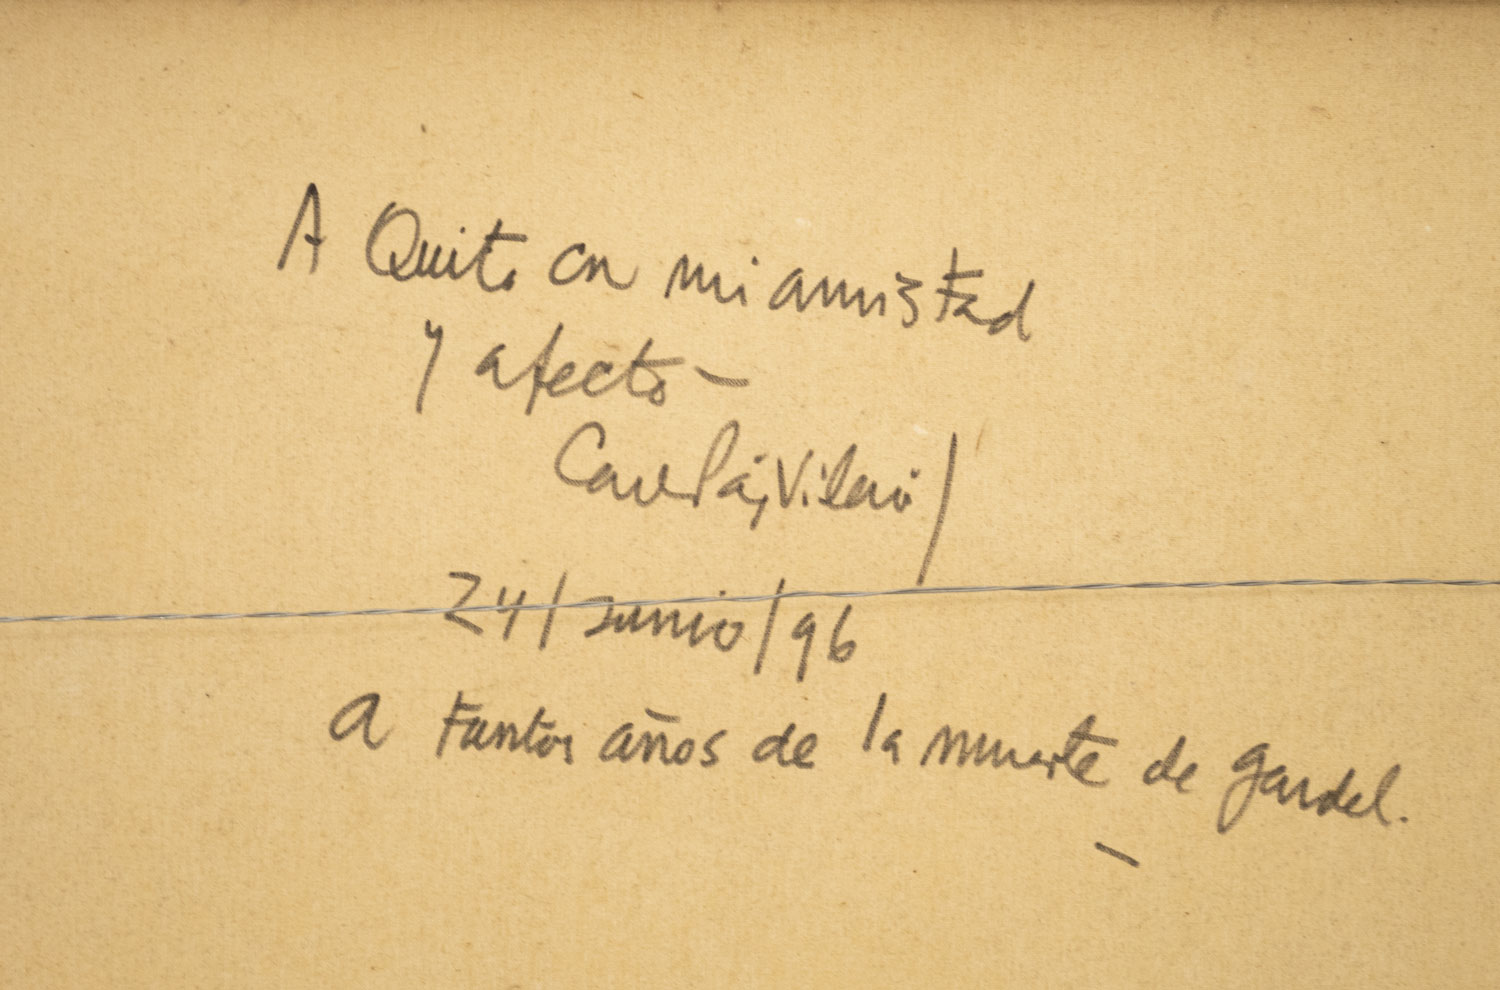 A Quito con mi amistad
y afecto-
Carlos Páez Vilaró
24/Junio/96
a tantos años de la muerte de gardel.